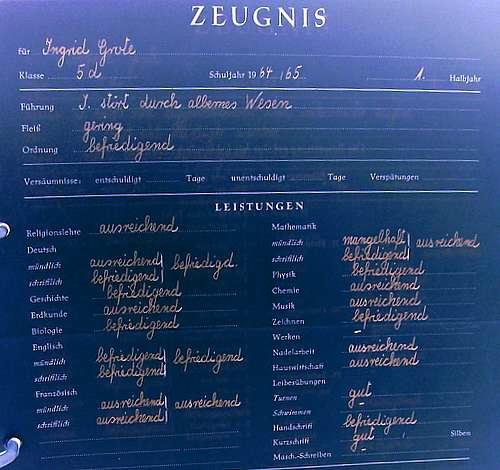 ZEUGNIS
für Ingrid Grote
Klasse 5d Schuljahr 1964/65 1. Halbjahr
Führung I. stört durch albernes Wesen
Fleiß gering
Ordnung befriedigend
Versäumnisse: entschuldigt Tage unentschuldigt Tage Verspätungen
LEISTUNGEN
Religionslehre ausreichend
Deutsch
mündlich ausreichend befriedigd.
schriftlich befriedigend
Geschichte befriedigend
Erdkunde ausreichend
Biologie befriedigend
Englisch
mündlich befriedigend befriedigend
schriftlich befriedigend
Französisch
mündlich ausreichend ausreichend
schriftlich ausreichend
Mathematik
mündlich mangelhaft ausreichend
schriftlich befriedigend
Physik befriedigend
Chemie ausreichend
Musik ausreichend
Zeichnen befriedigend
Werken –
Nadelarbeit ausreichend
Hauswirtschaft ausreichend
Leibesübungen
Turnen gut
Schwimmen –
Handschrift befriedigend
Kurzschrift gut Silben
Masch.-Schreiben –